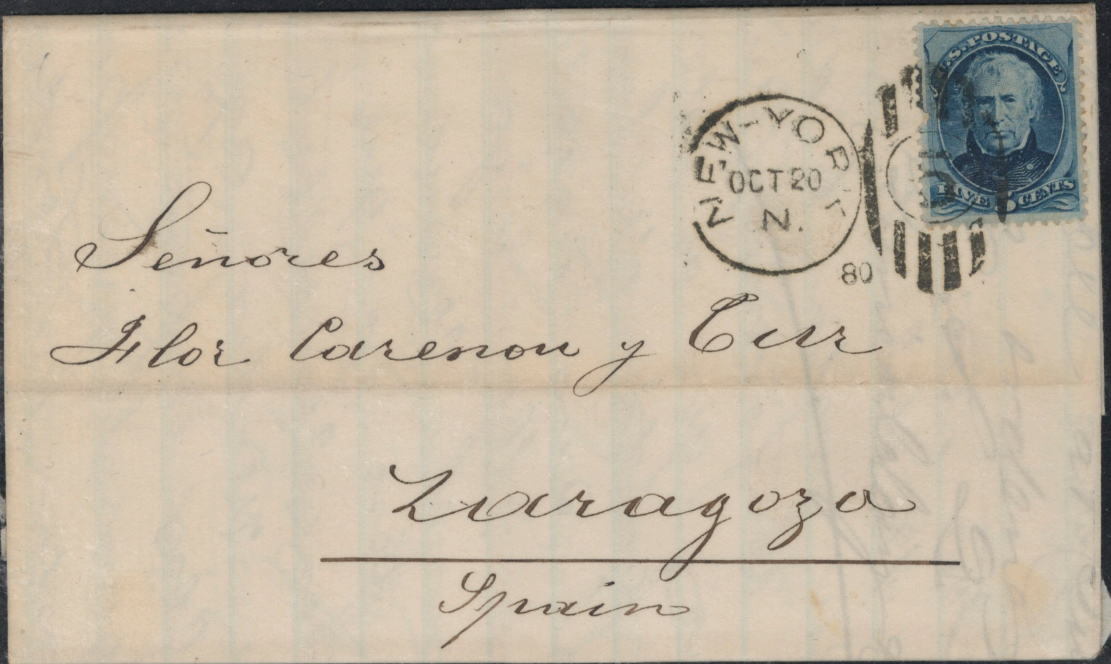 U.S. POSTAGE
FIVE 5 CENTS
NEW-YORK
OCT 20
N.
80
Señores
Flor Carenou y Tur
Zaragoza
Spain